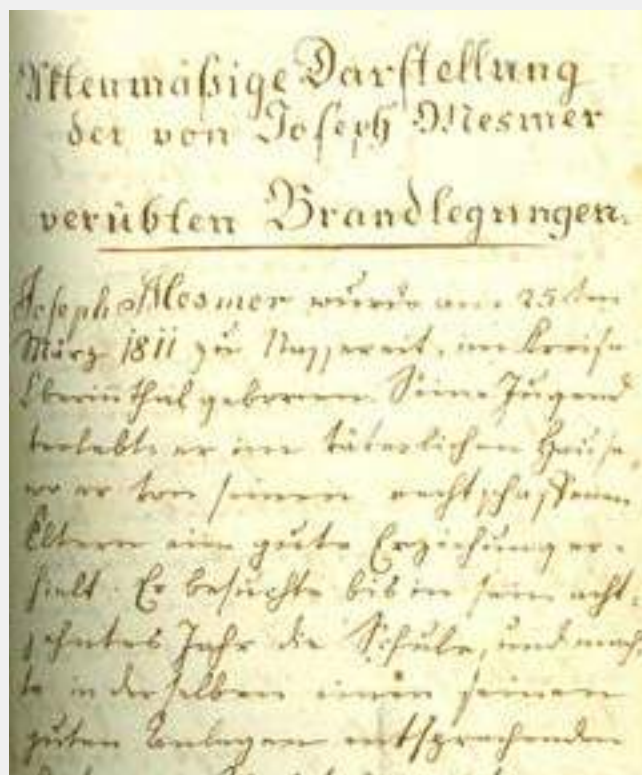 Aktenmäßige Darstellung
der von Joseph Mesmer
verübten Brandlegungen.
Joseph Mesmer wurde am 25sten
März 1811 zu Nassereit, im Kreise
Oberinnthal geboren. Seine Jugend
verlebte er im väterlichen Hause,
wo er von seinen rechtschaffenen
Eltern eine gute Erziehung er-
hielt. Er besuchte bis in sein acht-
zehntes Jahr die Schule, und mach-
te in derselben einen seinen
guten Anlagen entsprechenden